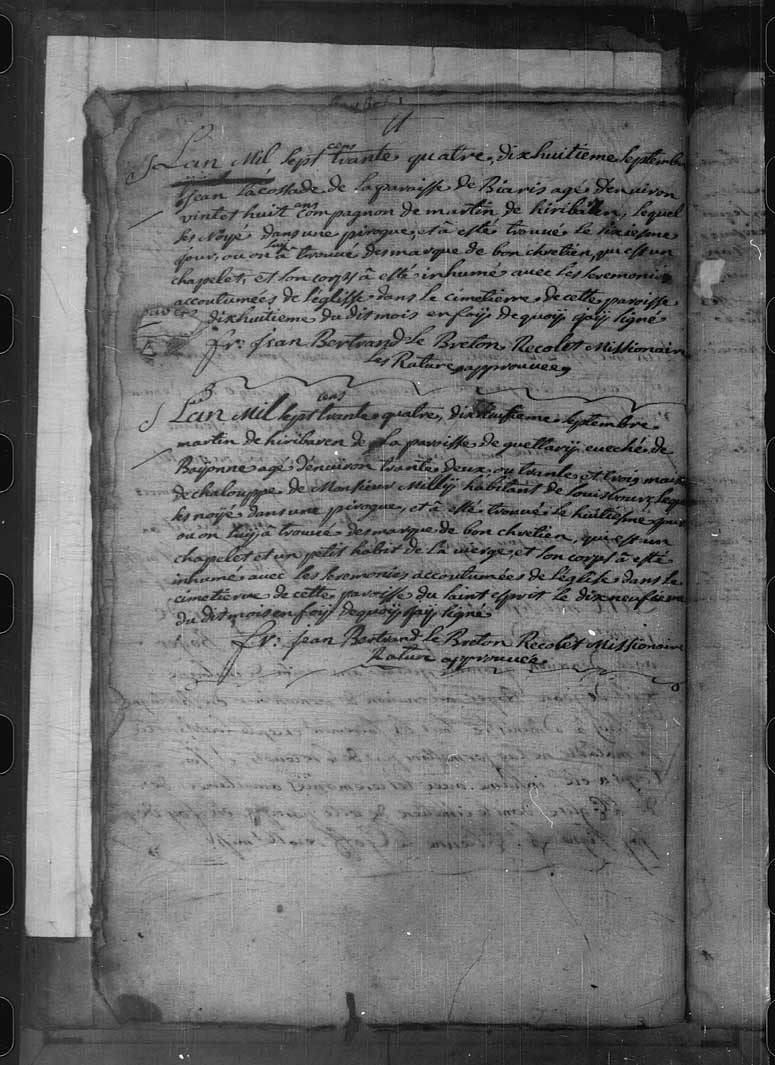 11
Lan Mil sept cens trante quatre, dixhuitieme septembre
Jean Lacostade de la paroisse de Biaris agé d'environ
vintet huit ans compagnon de martin de hiribaren, lequel
ses Noyé dans une pirogue, et à esté trouvé le
jour, ou on luy à trouvé des marque de bon chretien, qui est un
chapelet, et son corps à esté inhumé avec les seremonies
accoutumées de l'églisse dans le cimetierre de cette paroisse
dixhuitieme du dit mois en foij de quoij j'aij signé
fr: Jean Bertrand Le Breton Recolet Missionaire
les Rature approuvee
Lan Mil sept cens trante quatre, dixhuitieme septembre
martin de hiribaren de la paroisse de quettarij eveché de
Bayonne agé d'environ trante deux, ou trante et trois
de chalouppe de Monsieur Millij habitant de Louisbourg, lequel
ses noyé dans une pirogue, et à esté trouvé le huitiesme jour
ou on luij à trouvé des marque de bon chretien, qui est un
chapelet et un petit habit de la vierge, et son corps à esté
inhumé avec les seremonies accoutumées de l'églisse dans le
cimetierre de cette paroisse du saint esprit le dixneufieme
du dit mois en foij de quoij j'aij signé
fr: Jean Bertrand Le Breton Recolet Missionaire
Rature approuvée